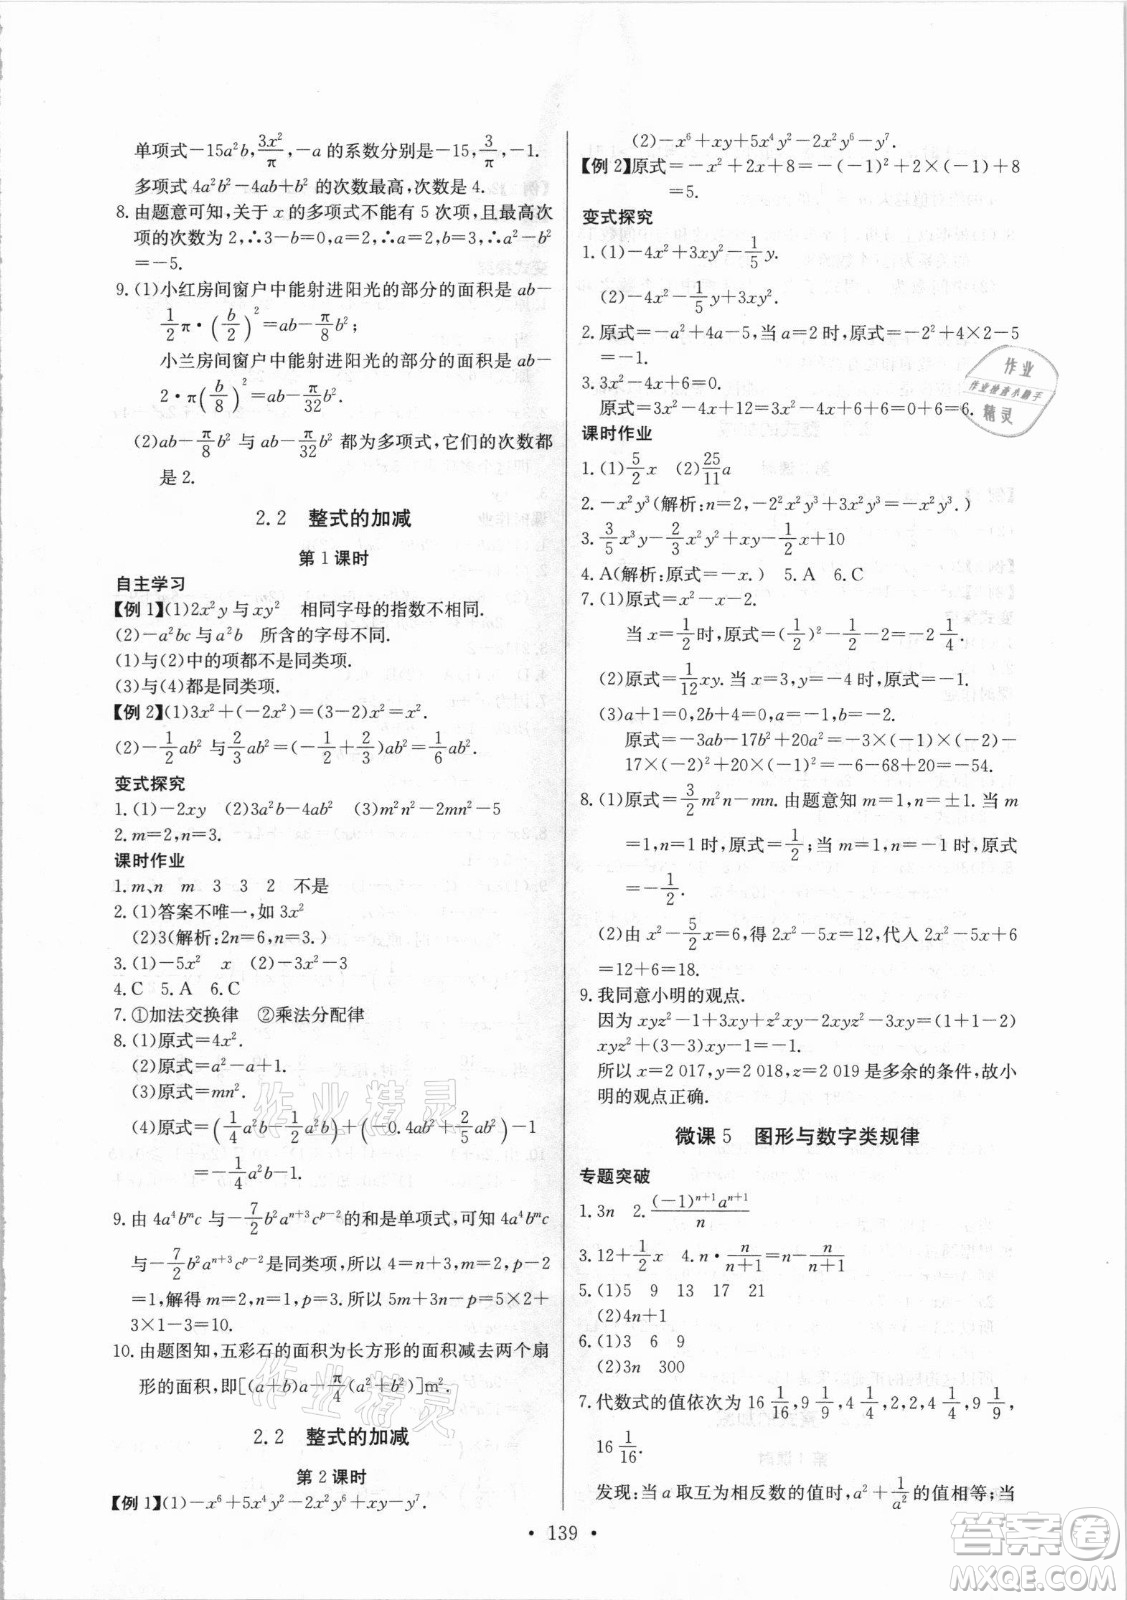 单项式－15a²b,3x²/π,－a的系数分别是－15,3/π,－1.
多项式4a²b²－4ab＋b²的次数最高,次数是4.
8. 由题意可知,关于x的多项式不能有5次项,且最高次
项的次数为2,∴3－b＝0,a＋2＝0,∴a＝－2,a²－b²
＝－5.
9. (1)小红房间窗户中能射进阳光的部分的面积是ab－
1/2π·(b/2)²＝ab－π/8b²;
小兰房间窗户中能射进阳光的部分的面积是ab－
2·π(b/8)²＝ab－π/32b².
(2)ab－π/8b²和ab－π/32b² 都为多项式,它们的次数都
是2.
2.2 整式的加减
第1课时
自主学习
【例1】(1)2x²y与xy² 相同字母的指数不相同.
(2)－a²bc与a²b 所含的字母不同.
(1)与(2)中的项都不是同类项.
(3)与(4)都是同类项.
【例2】(1)3x²＋(－2x²)＝(3－2)x²＝x².
(2)－1/2ab²与2/3ab²＝(－1/2＋2/3)ab²＝1/6ab².
变式探究
1. (1)－2xy (2)3a²b－4ab² (3)m²n²－2mn²－5
2. m＝2,n＝3.
课时作业
1. m、n m 3 3 2 不是
2. (1)答案不唯一,如3x²
(2)3(解析:2n＝6,n＝3.)
3. (1)－5x² x (2)－3x²－3
4. C 5. A 6. C
7. ①加法交换律 ②乘法分配律
8. (1)原式＝4x².
(2)原式＝a²－a＋1.
(3)原式＝mn².
(4)原式＝(1/4a²b－1/2a²b)＋(－0.4ab²＋2/5ab²)－1
＝－1/4a²b－1.
9. 由4a⁴bᵐc与－7/2b²aⁿ⁺³cᵖ⁻²的和是单项式,可知4a⁴bᵐc
与－7/2b²aⁿ⁺³cᵖ⁻²是同类项,所以4＝n＋3,m＝2,p－2
＝1,解得n＝1,p＝3.所以5m＋3n－p＝5×2＋
3×1－3＝10.
10. 由题图知,五彩石的面积为长方形的面积减去两个扇
形的面积,即[(a＋b)a－π/4(a²＋b²)]m².
2.2 整式的加减
第2课时
【例1】(1)－x⁶＋5x⁴y²－2x²y⁶＋xy－y⁷.
(2)－x⁶＋xy＋5x⁴y²－2x²y⁶－y⁷.
【例2】原式＝－x²＋2x＋8＝－(－1)²＋2×(－1)＋8
＝5.
变式探究
1. (1)－4x²＋3xy²－1/5y.
(2)－4x²－1/5y＋3xy².
2. 原式＝－a²＋4a－5,当a＝2时,原式＝－2²＋4×2－5
＝－1.
3. 3x²－4x＋6＝0.
原式＝3x²－4x＋6＋0＋0＝0＋6＝6.
课时作业
1. (1)5/2x (2)25/11a
2. －x²y³(解析:n＝2,－2²x²y³＋3x²y³＝－x²y³.)
3. 3/5x³y－2/3x²y²＋xy－1/2x＋10
4. A(解析:原式＝－x.) 5. A 6. C
7. (1)原式＝x²－x－2.
当x＝1/2时,原式＝(1/2)²－1/2－2＝－2 1/4.
(2)原式＝1/12xy.当x＝3,y＝－4时,原式＝－1.
(3)a＋1＝0,2b＋4＝0,a＝－1,b＝－2.
原式＝－3ab－17b²＋20a²＝－3×(－1)×(－2)－
17×(－2)²＋20×(－1)²＝－6－68＋20＝－54.
8. (1)原式＝3/2m²n－mn.由题意知m＝1,n＝±1.当m
＝1,n＝1时,原式＝1/2;当m＝1,n＝－1时,原式＝
－1/2.
(2)由x²－5/2x＝6,得2x²－5x＝12,代入2x²－5x＋6
＝12＋6＝18.
9. 我同意小明的观点.
因为xyz²－1＋4xy＋z²xy－2xyz²－3－3xy－xy＋
xyz²＝(－1)＋(－3)＝－4,
所以x＝2 017,y＝2 018,z＝2 019是多余的条件,故小
明的观点正确.
微课5 图形与数字类规律
专题突破
1. 3n 2. (－1)ⁿ⁺¹aⁿ⁺¹/n
3. 12＋1/2x 4. n·n/(n＋1)＝n－n/(n＋1)
5. (1)5 9 13 17 21
(2)4n＋1
6. (1)3 6 9
(2)3n 300
7. 代数式的值依次为16 1/16,9 1/9,4 1/4,2,2,4 1/4,9 1/9,
16 1/16.
发现:当a取互为相反数的值时,a²＋1/a²的值相等;当
• 139 •
作业
作业检查小助手
精灵
作业精灵
作业精灵
答案圈
MXQE.COM